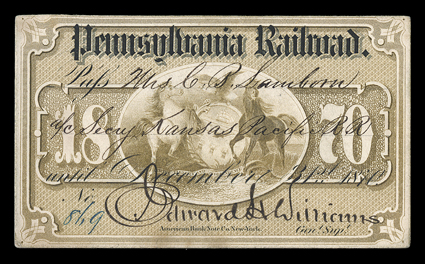 Pennsylvania Railroad.
Pass Mrs. C. B. Lamborn
a/c Secy. Kansas Pacific R R
18 70
until December 31st 1870
No.
869 Edward H Williams
American Bank Note Co. New York. Genl. Supt.